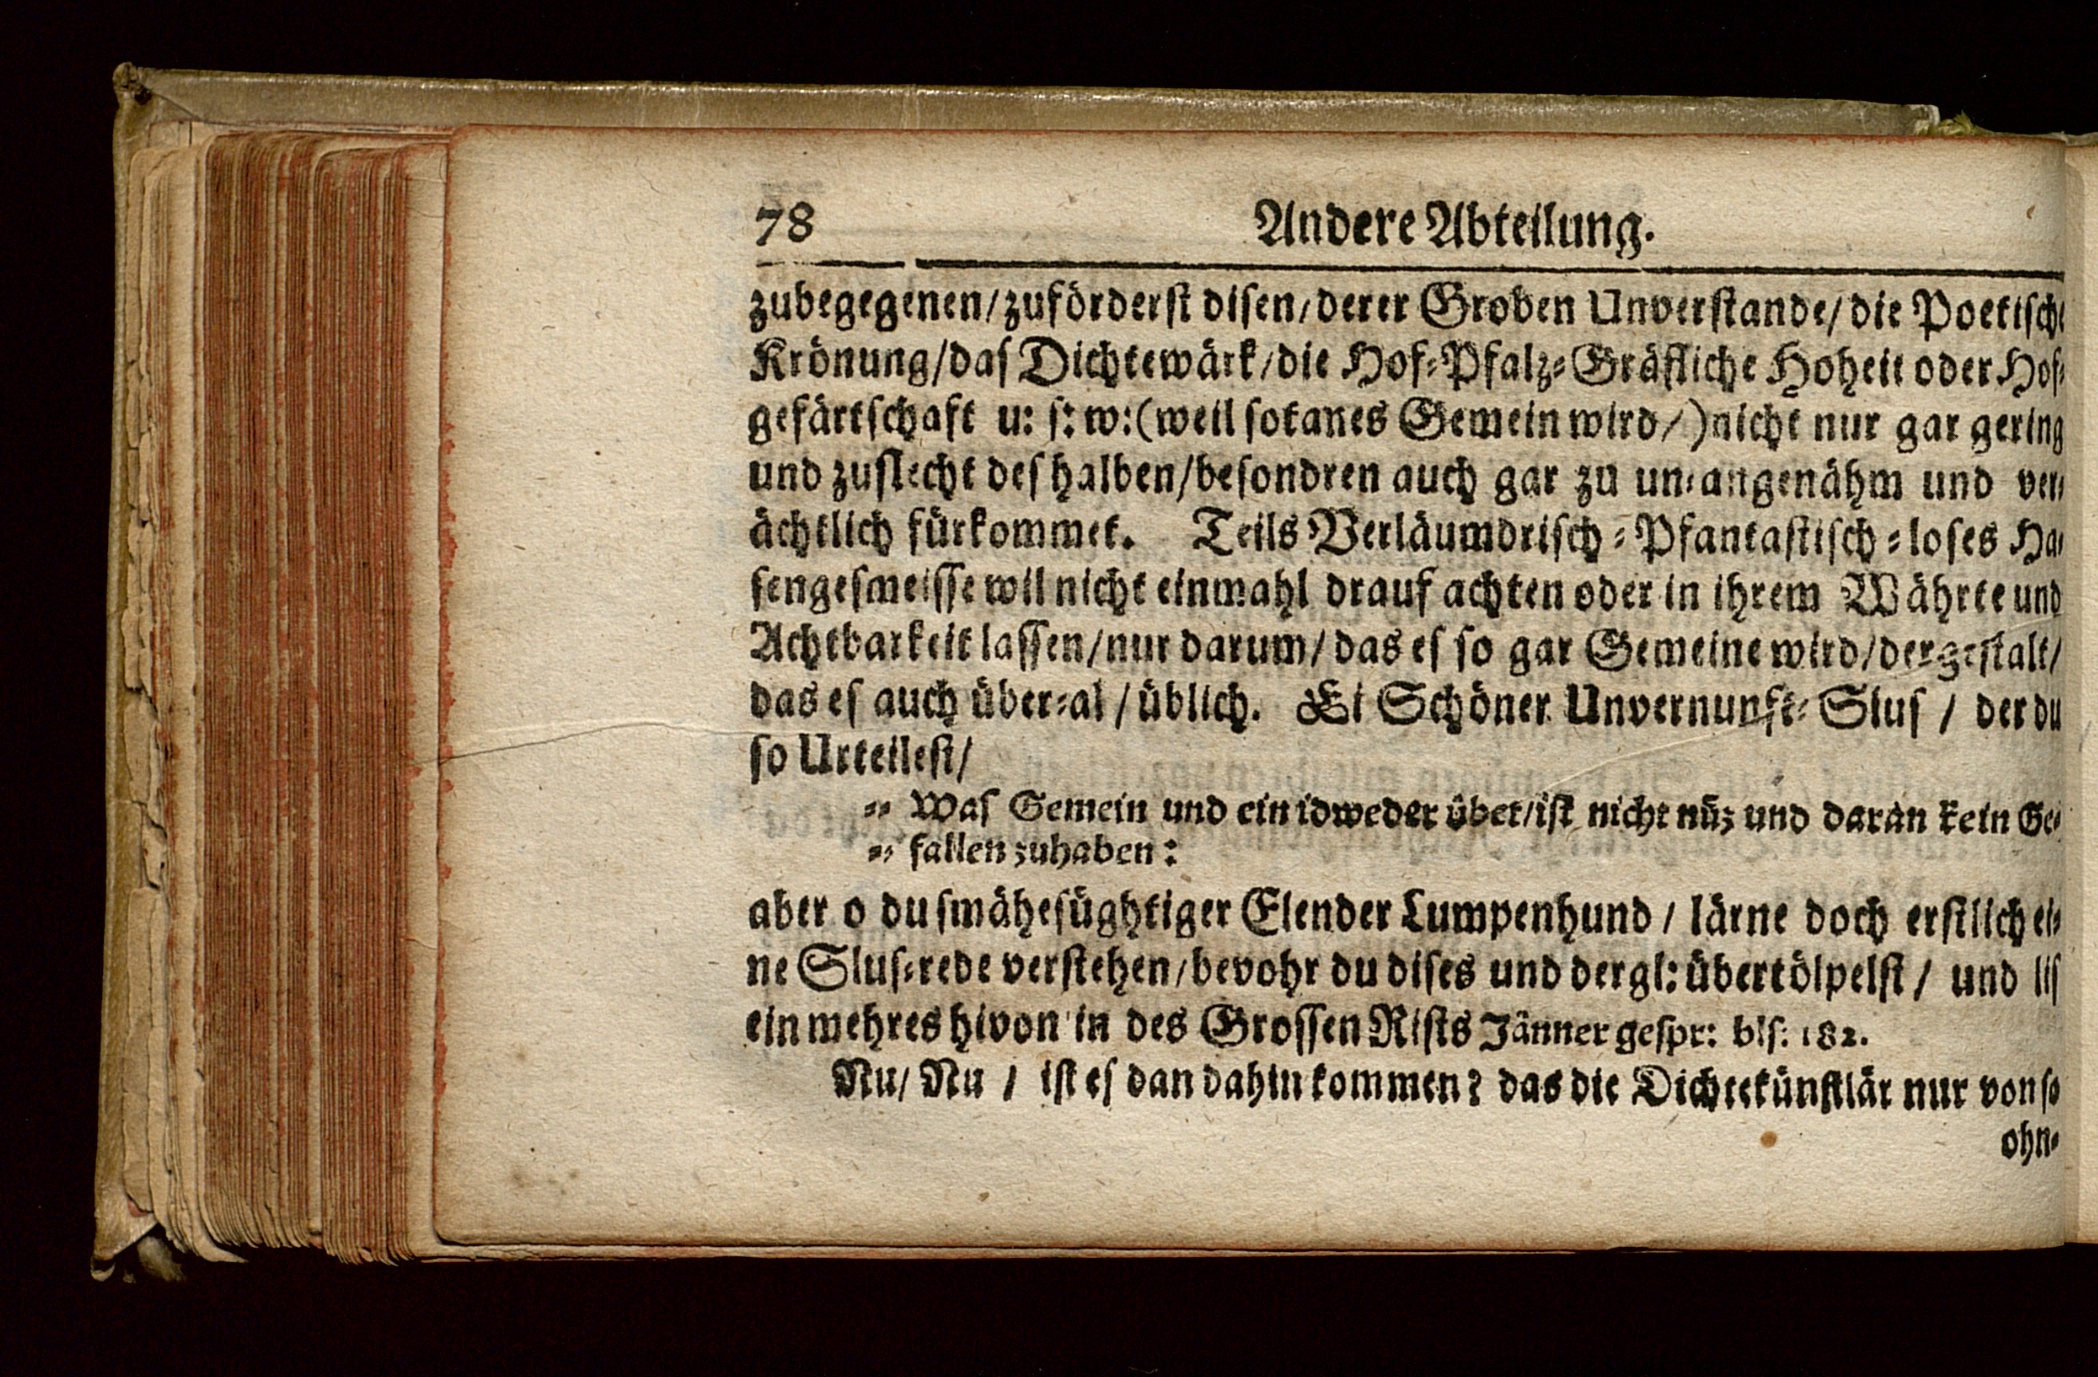 78 Andere Abteilung.
zubegegenen/zuförderst disen/derer Groben Unverstande/die Poetische
Krönung/das Dichtewärk/die Hof-Pfalz-Gräfliche Hoheit oder Hof-
gefärtschaft u: s: w:(weil sotanes Gemein wird/)nicht nur gar gering
und zuslecht deshalben/besondren auch gar zu un-angenähm und ver-
ächtlich fürkommet. Teils Verläumdrisch-Pfantastisch-loses Ha-
sengesmeisse wil nicht einmahl drauf achten oder in ihrem Währte und
Achtbarkeit lassen/nur darum/das es so gar Gemeine wird/dergestalt/
das es auch über-al/üblich. Ei Schöner Unvernunft-Slus/der du
so Urteilest/
"" Was Gemein und ein idweder übet/ist nicht nüz und daran kein Ge-
"" fallen zuhaben:
aber o du smähesüghtiger Elender Lumpenhund/lärne doch erstlich ei-
ne Slus-rede verstehen/bevohr du dises und dergl: übertölpelst/und lis
ein mehres hivon in des Grossen Rists Jänner gespr: bls: 182.
Nu/Nu/ist es dan dahin kommen? das die Dichtekünstlär nur von so
ohn-